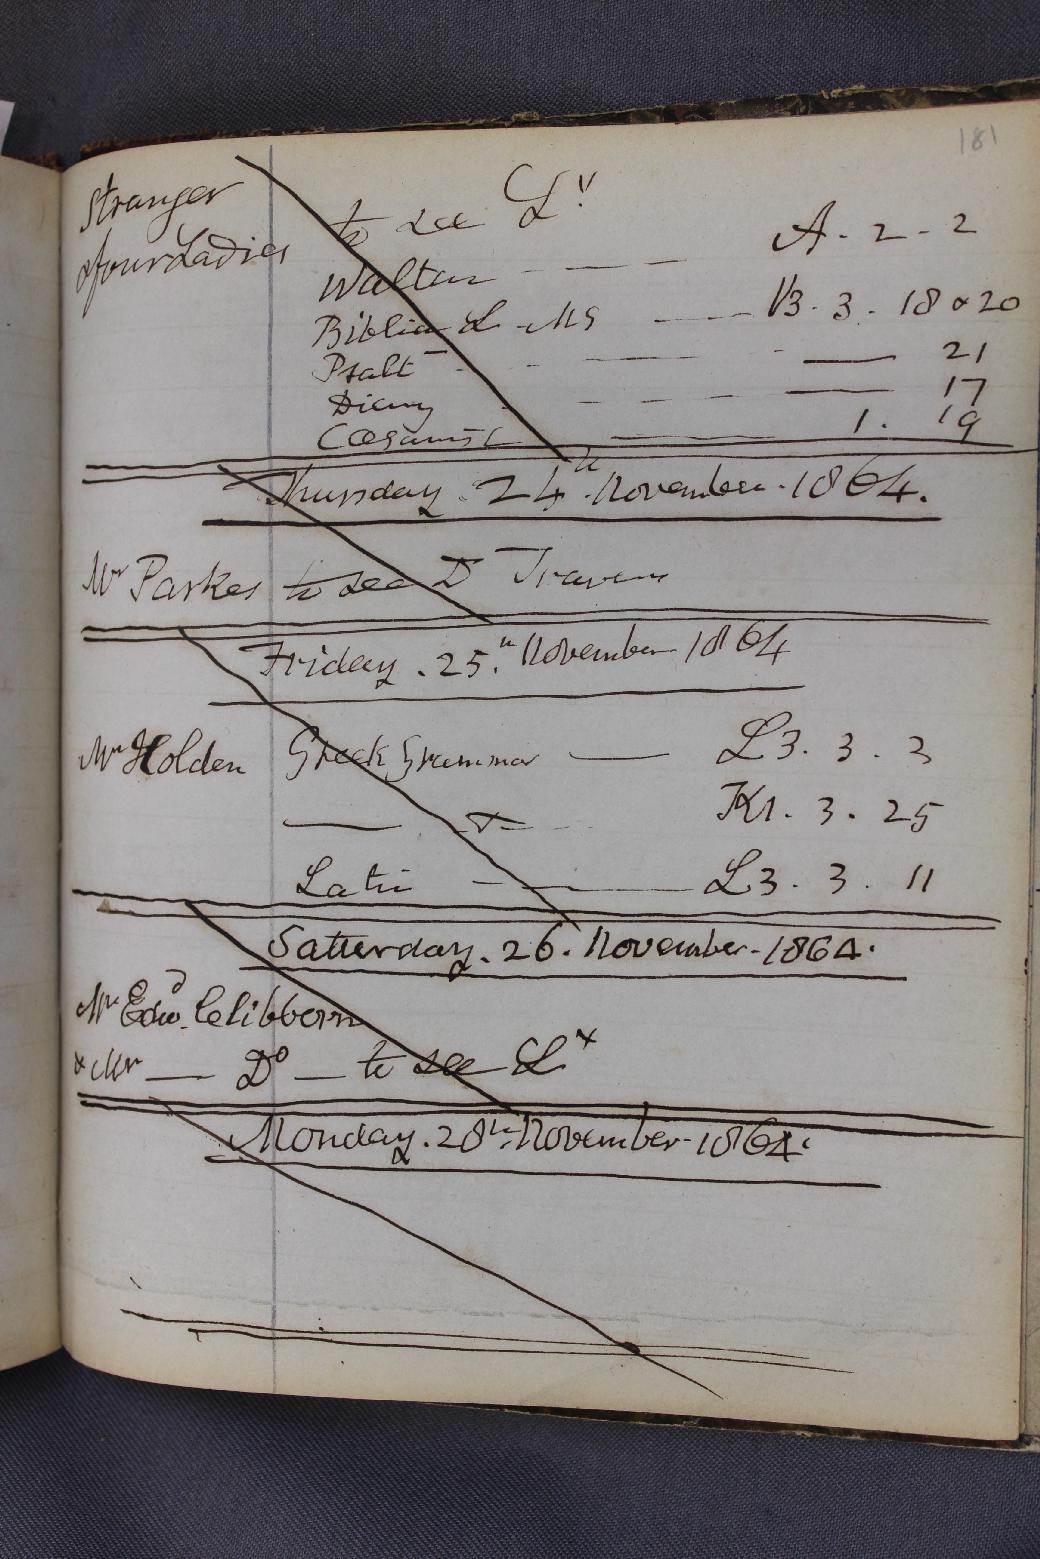 181
Stranger
& four Ladies to see Ly
Walton - - - A - 2 - 2
Biblia L - MS - B. 3. 18 & 20
Psalt - - - 21
Diary - - - 17
1. 19
Thursday. 24th. November. 1864.
Mr Parkes to see Dr Travers
Friday. 25.th November 1864
Mr Holden Greek Grammar — L3. 3. 3
— & — K1. 3. 25
Latin — L3. 3. 11
Satterday. 26. November. 1864.
Mr Edwd. Clibborn
& Mr — Do — to see Ly
Monday. 28th. November. 1864.